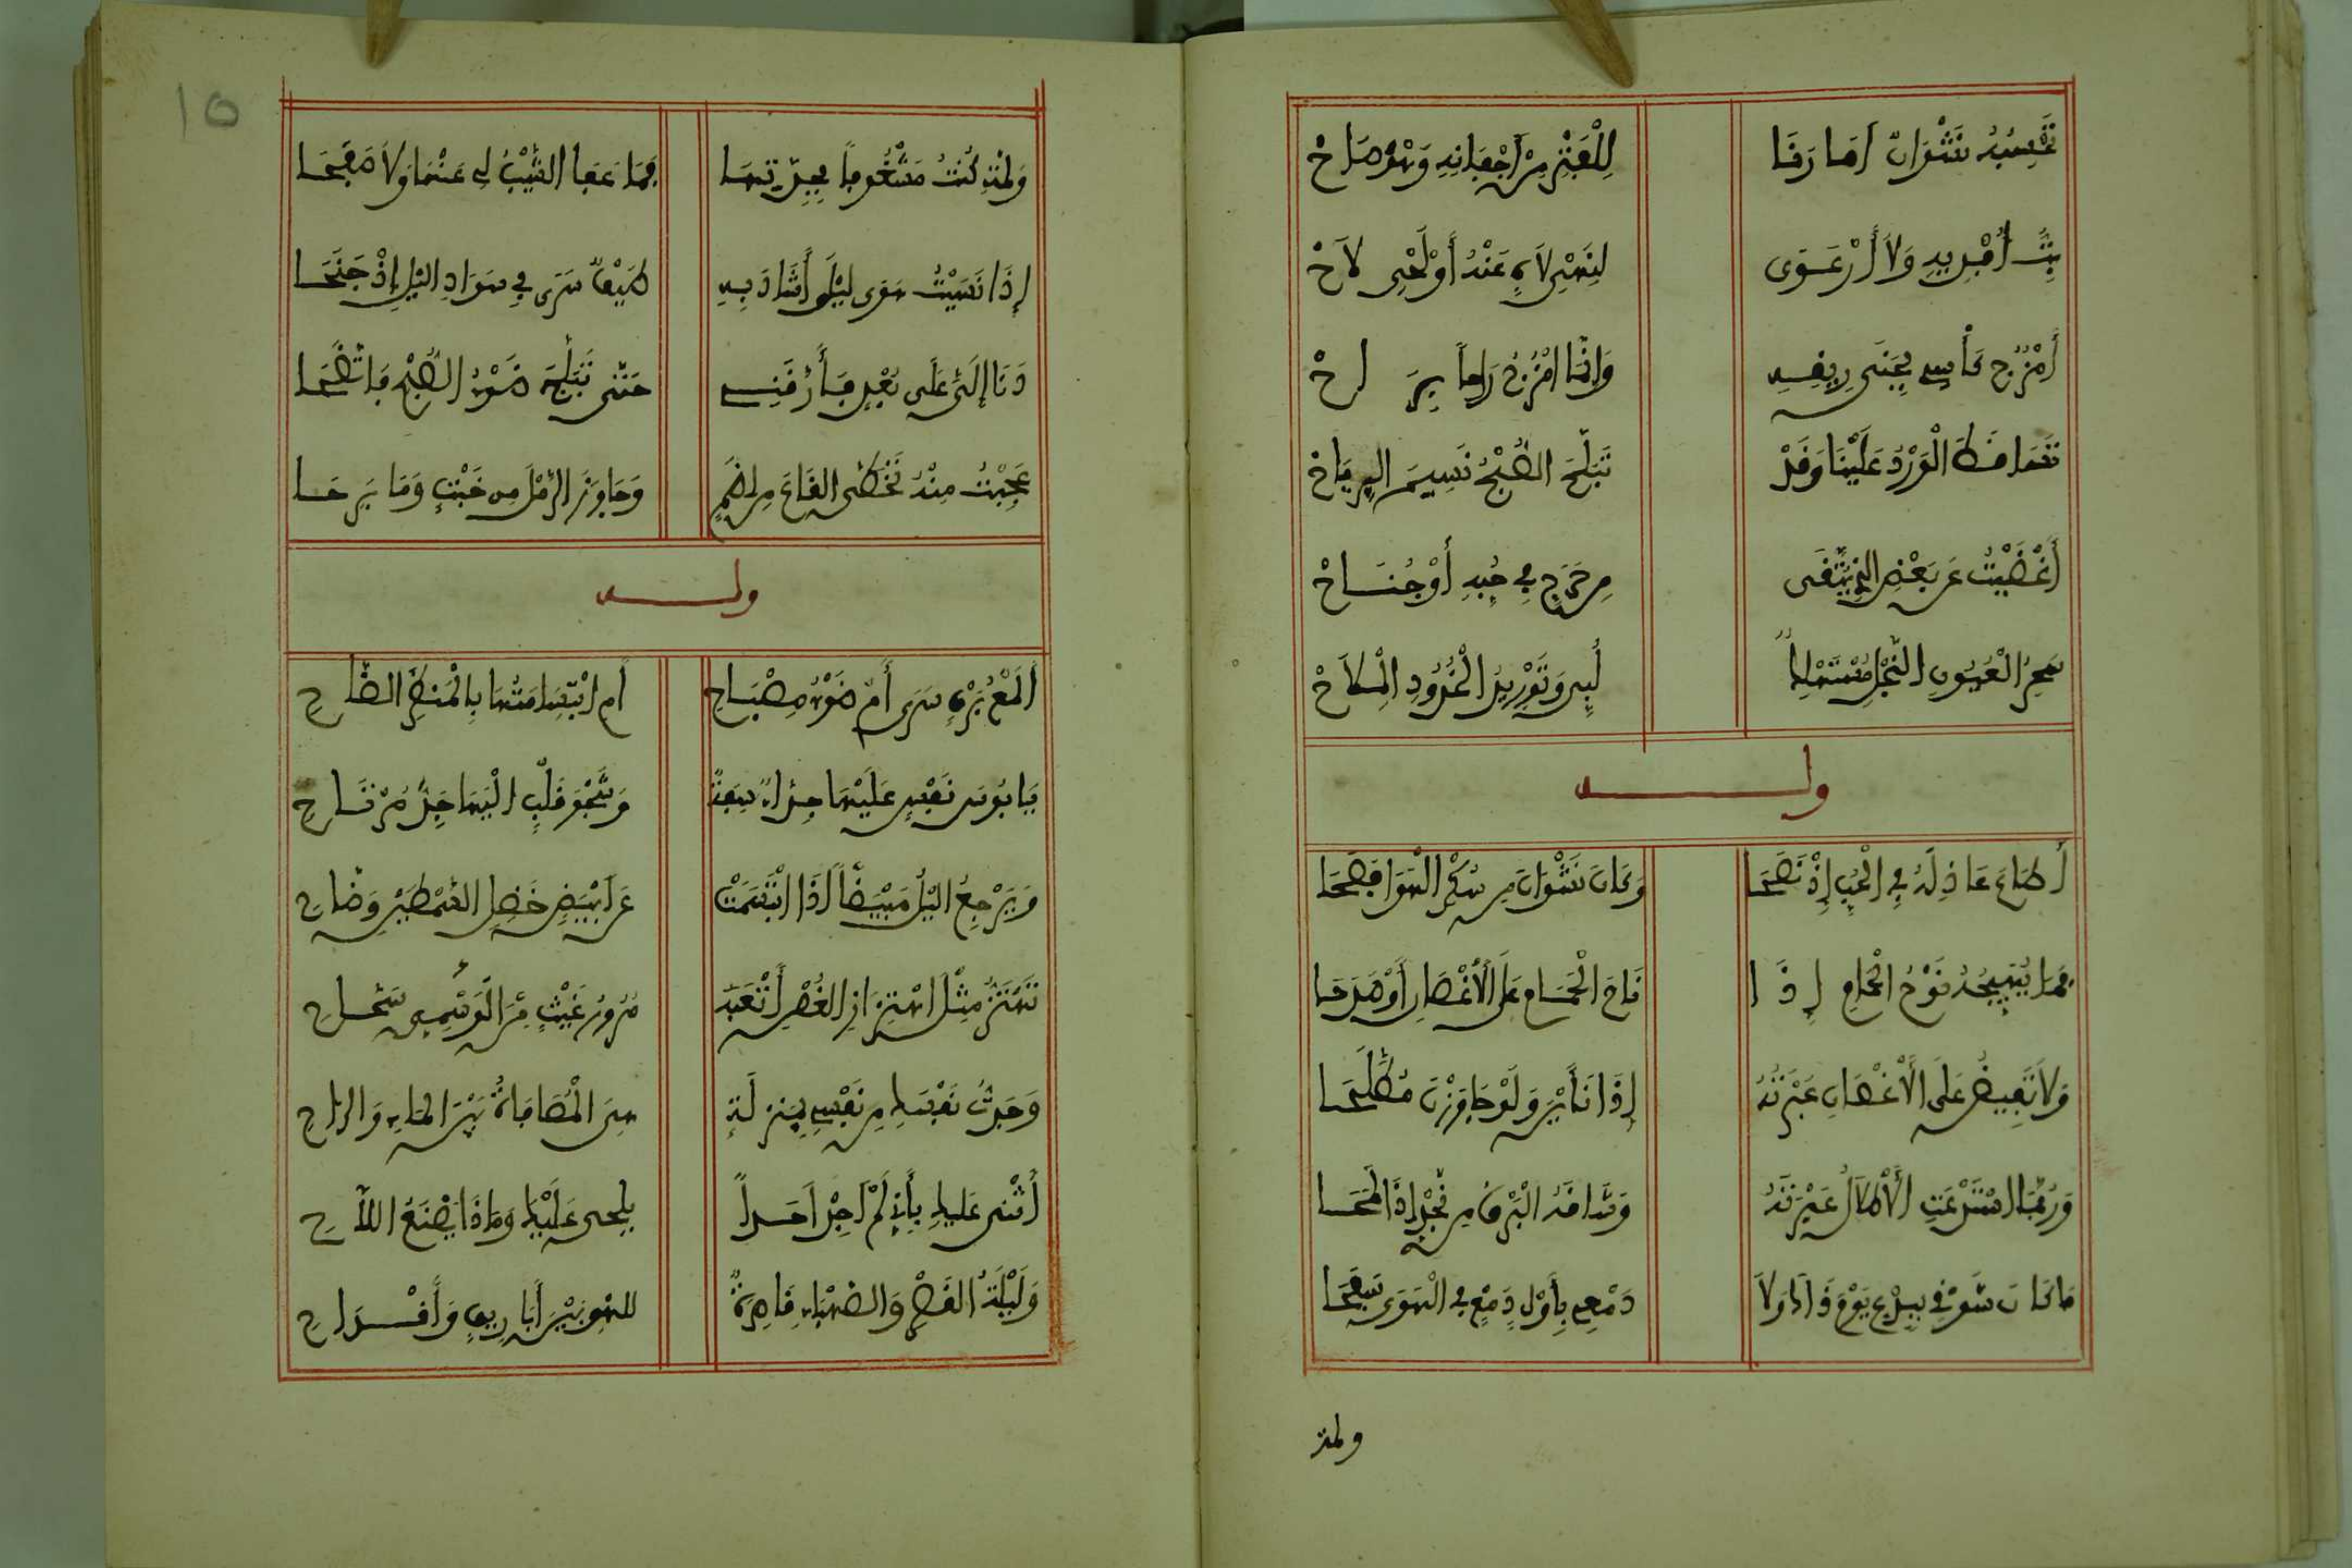 تَحْسِبُهُ نَشْوَانَ أَمَا رَنَا لِلْفَتْرِ مِنْ أَجْفَانِهِ وَهْوَ صَاحْ
بِتُّ أُفَدِّيهِ وَلاَ أَرْعَوِي لِنَهْيِ لاَهٍ عَنْهُ أَوْ لَحْيِ لاَحْ
أَمْزُجُ كَأْسِي بِجَنَى رِيقِهِ وَإِنَّمَا أَمْزُجُ رَاحاً بِرَاحْ
تَسَاقَطَ الْوَرْدُ عَلَيْنَا وَقَدْ تَبَلَّجَ الصُّبْحُ نَسِيمَ الرِيَاحْ
أَغْضَيْتُ عَنْ بَعْضِ الذِي يُتَّقَى مِنْ حَرَجٍ فِي حُبِهِ أَوْ جُنَاحْ
سِحْرُ الْعُيُونِ النُّجْلِ مُسْتَهْلِكٌ لُبِي وَتَوْرِيدُ الْخُدُودِ الْمِلاَحْ
ولـــه
أَطَاعَ عَاذِلَهُ فِي الْحُبِ إِذْ نَصَحَا وَكَانَ نَشْوَانَ مِن سُكْرِ الْهَوَا فَصَحَا
فَمَا يُهَيِّجُهُ نَوْحُ الْحَمَامِ إِذَا نَاحَ الْحَمَام عَلَى الأَغْصَانِ أَوْ صَدَحَا
وَلاَ تَفِيضُ عَلَى الأَغْصَانِ عَبْرَتُهُ إِذَا نَأَيْنَ وَلَوْ جَاوَزْنَ مُطَّلَحَا
وَرُبَّمَا اسْتَدْعَتِ الأَطْلاَلُ عَبْرَتَهُ وَشَاقَهُ الْبَرْقُ مِن نَجْدٍ إِذَا لَمَحَا
مَا كَانَ شَوْقِي بِبِدْعٍ يَوْمَ ذَاكَ وَلاَ دَمْعِي بِأَوَّلِ دَمْعٍ فِي الْهَوَى سَفَحَا
ولمة
١٥
وَلِمَّةٍ كُنْتُ مَشْغُوفاً بِجِدَّتِهَا فَمَا عَفَا الشَّيْبُ لِي عَنْهَا وَلاَ صَفَحَا
إِذَا نَسَيْتُ هَوَى لَيْلَى أَشَادَ بِهِ طَيْفٌ سَرَى فِي سَوَادِ اليْلِ إِذْ جَنَحَا
دَنَا إِلَيَّ عَلَى بُعْدٍ فَأَرَّقَنِي حَتَّى تَبَلَّجَ ضَوْءُ الصُّبْحِ فَاتَّضَحَا
عَجِبْتُ مِنْهُ تَخَطَّى القَاعَ مِن إِضَمٍ وَجَاوَزَ الرَّمْلَ مِن خَبْتٍ وَمَا بَرِحَا
ولـــه
أَلَمْعُ بَرْقٍ سَرَى أَمْ ضَوْءُ مِصْبَاحِ أَمِ ابْتِسَامَتُهَا بِالْمَنْظَرِ الضَّاحِ
يَا بُوسَ نَفْسٍ عَلَيْهَا جِدُّ آسِفَةٍ وَشَجْوَ قَلْبٍ الَيْهَا جِدُّ مُرْتَاحِ
وَيَرْجِعُ اليْلُ مُبْيَضّاً اذَا ابْتَسَمَتْ عَن ابْيَضٍ خَضِلِ السِّمْطَيْنِ وَضَّاحِ
تَهْتَزُّ مِثْلَ اهْتِزَازِ الغُصْنِ أَتْعَبَهُ مُرُورُ غَيْثٍ مِنَ الْوَسْمِيِ سَحَّاحِ
وَجَدْتُ نَفْسَكِ مِن نَفْسِي بِمَنْزِلَةٍ هِيَ الْمُصَافَاةُ بَيْنَ المَاءِ وَالرَّاحِ
أُثْنِي عَلَيْكِ بِأَنِّي لَمْ أَجِدْ أَحَداً يَلْحَى عَلَيْكِ وَمَاذَا يَصْنَعُ اللاَّحِ
وَلَيْلَةَ القَصْرِ وَالصَّهْبَاءِ قَاصِرَةٌ لِلَّهْوِ بَيْنَ أَبَارِيقٍ وَأَقْدَاحِ